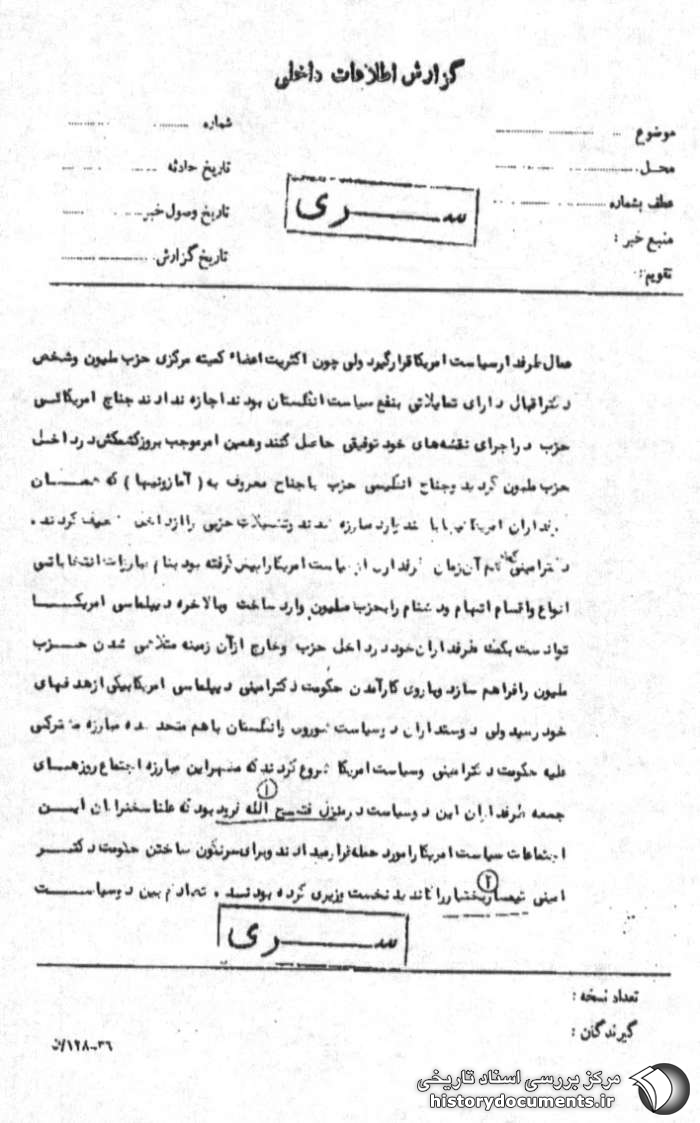 گزارش اطلاعات داخلی
موضوع
محل
عطف بشماره
منبع خبر :
تقویم :
شماره
تاریخ حادثه
تاریخ وصول خبر
تاریخ گزارش
سری
عمال طرفدار سیاست امریکا قرار گیرد ولی چون اکثریت اعضاء کمیته مرکزی حزب ملیون و شخص
دکتر اقبال دارای تمایلاتی بنفع سیاست انگلستان بودند اجازه ندادند جناح امریکائی
حزب در اجرای نقشه‌های خود توفیقی حاصل کنند و همین امر موجب بروز کشمکش در داخل
حزب ملیون گردید و جناح انگلیسی حزب با جناح معروف به ( آمازونیها ) که همان
طرفداران امریکا با یکدیگر مبارزه نمودند و تشکیلات حزبی را از داخل ضعیف کردند .
دکتر امینی که هم آن زمان طرفداری از سیاست امریکا را پیش گرفته بود بنام مبارزات انتخاباتی
انواع و اقسام اتهام و دشنام را بحزب ملیون وارد ساخت و بالاخره دیپلماسی امریکا
توانست بکمک طرفداران خود در داخل حزب و خارج از آن زمینه متلاشی شدن حزب
ملیون را فراهم سازد و با روی کار آمدن حکومت دکتر امینی دیپلماسی امریکا بیکی از هدفهای
خود رسید ولی دوستداران دو سیاست شوروی و انگلستان با هم متحد شده مبارزه مشترکی
علیه حکومت دکتر امینی و سیاست امریکا شروع کردند که مظهر این مبارزه اجتماع روزهای
جمعه طرفداران این دو سیاست در منزل فتح الله فرود بود که علنا سخنرانان این
۱
اجتماعات سیاست امریکا را مورد حمله قرار میدادند و برای سرنگون ساختن حکومت دکتر
امینی تیمسار بختیار را کاندید نخست وزیری کرده بودند . تصادم بین دو سیاست
۲
سری
تعداد نسخه :
گیرندگان :
۳۶-۱۲۸/ن
مرکز بررسی اسناد تاریخی
historydocuments.ir